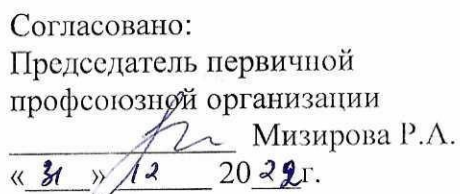 Согласовано:
Председатель первичной
профсоюзной организации
Мизирова Р.А.
« 31 » 12 20 г.